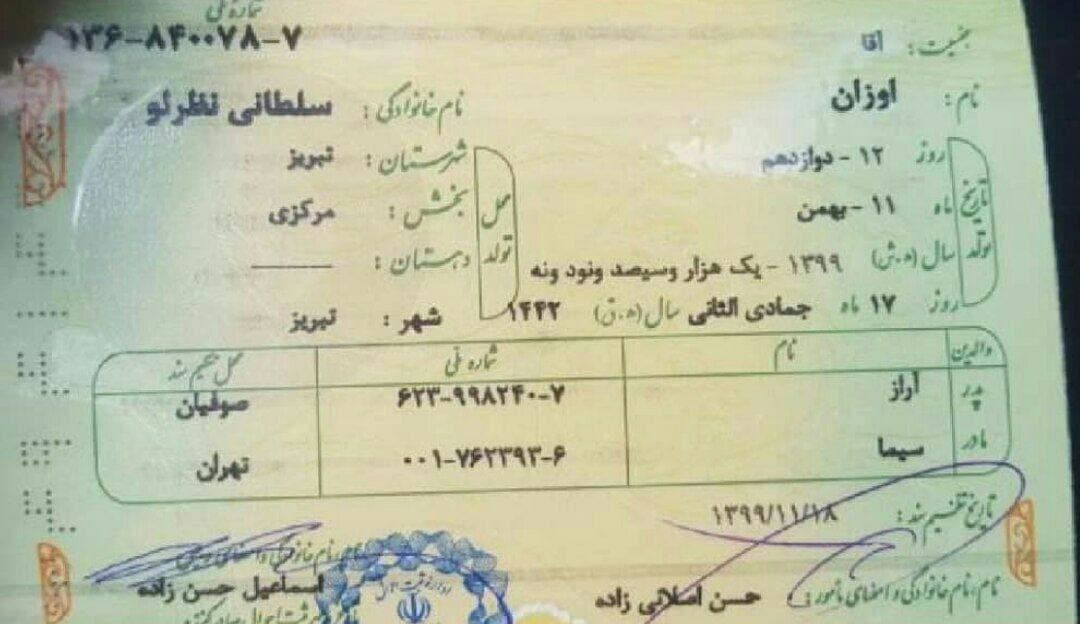 شماره ملی
۱۳۶-۸۴۰۰۷۸-۷
جنسیت: آقا
نام: اوزان
نام خانوادگی: سلطانی نظرلو
تاریخ تولد
روز ۱۲ - دوازدهم
ماه ۱۱ - بهمن
سال (ه.ش) ۱۳۹۹ - یک هزار وسیصد ونود ونه
روز ۱۷ ماه جمادی الثانی سال (ه.ق) ۱۴۴۲
محل تولد
شهرستان: تبریز
بخش: مرکزی
دهستان: ————
شهر: تبریز
والدین نام شماره ملی محل تنظیم سند
پدر آراز ۶۲۳-۹۹۸۲۴۰-۷ صوفیان
مادر سیما ۰۰۱-۷۶۲۳۹۳-۶ تهران
تاریخ تنظیم سند: ۱۳۹۹/۱۱/۱۸
نام، نام خانوادگی و امضای مأمور: حسن اصلانی زاده
نام، نام خانوادگی و امضای
اسماعیل حسن زاده